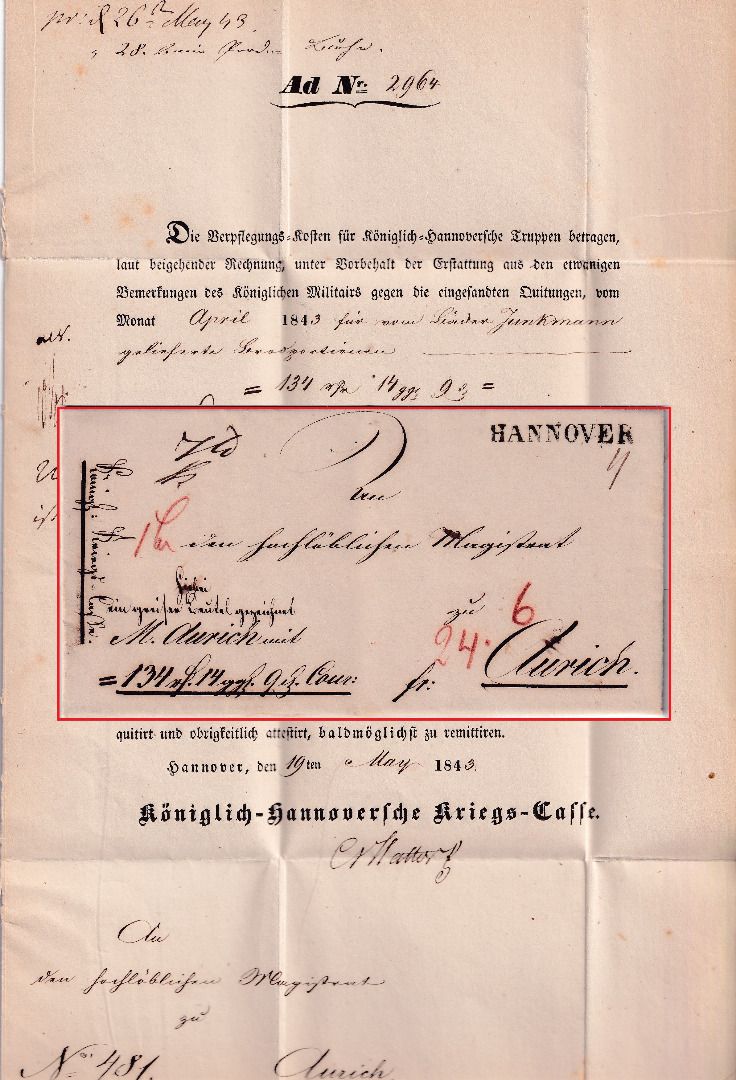 26t May 43
28.
Ad Nr. 2964
Die Verpflegungs-Kosten für Königlich-Hannoversche Truppen betragen,
laut beigehender Rechnung, unter Vorbehalt der Erstattung aus den etwanigen
Bemerkungen des Königlichen Militairs gegen die eingesandten Quitungen, vom
Monat April 1843 für vom Bäcker Junkmann
gelieferte Brodportionen
= 134 rh 14 ggr 9 =
HANNOVER
An
den hochlöblichen Magistrat
Hiebei
ein greiser Beutel gezeichnet
zu 6
M. Aurich mit
24.
Aurich.
= 134 rh. 14 ggr. 9 Cour:
fr:
quitirt und obrigkeitlich attestirt, baldmöglichst zu remittiren.
Hannover, den 19ten May 1843
Königlich-Hannoversche Kriegs-Casse.
An
den hochlöblichen Magistrat
zu
No. 481.
Aurich